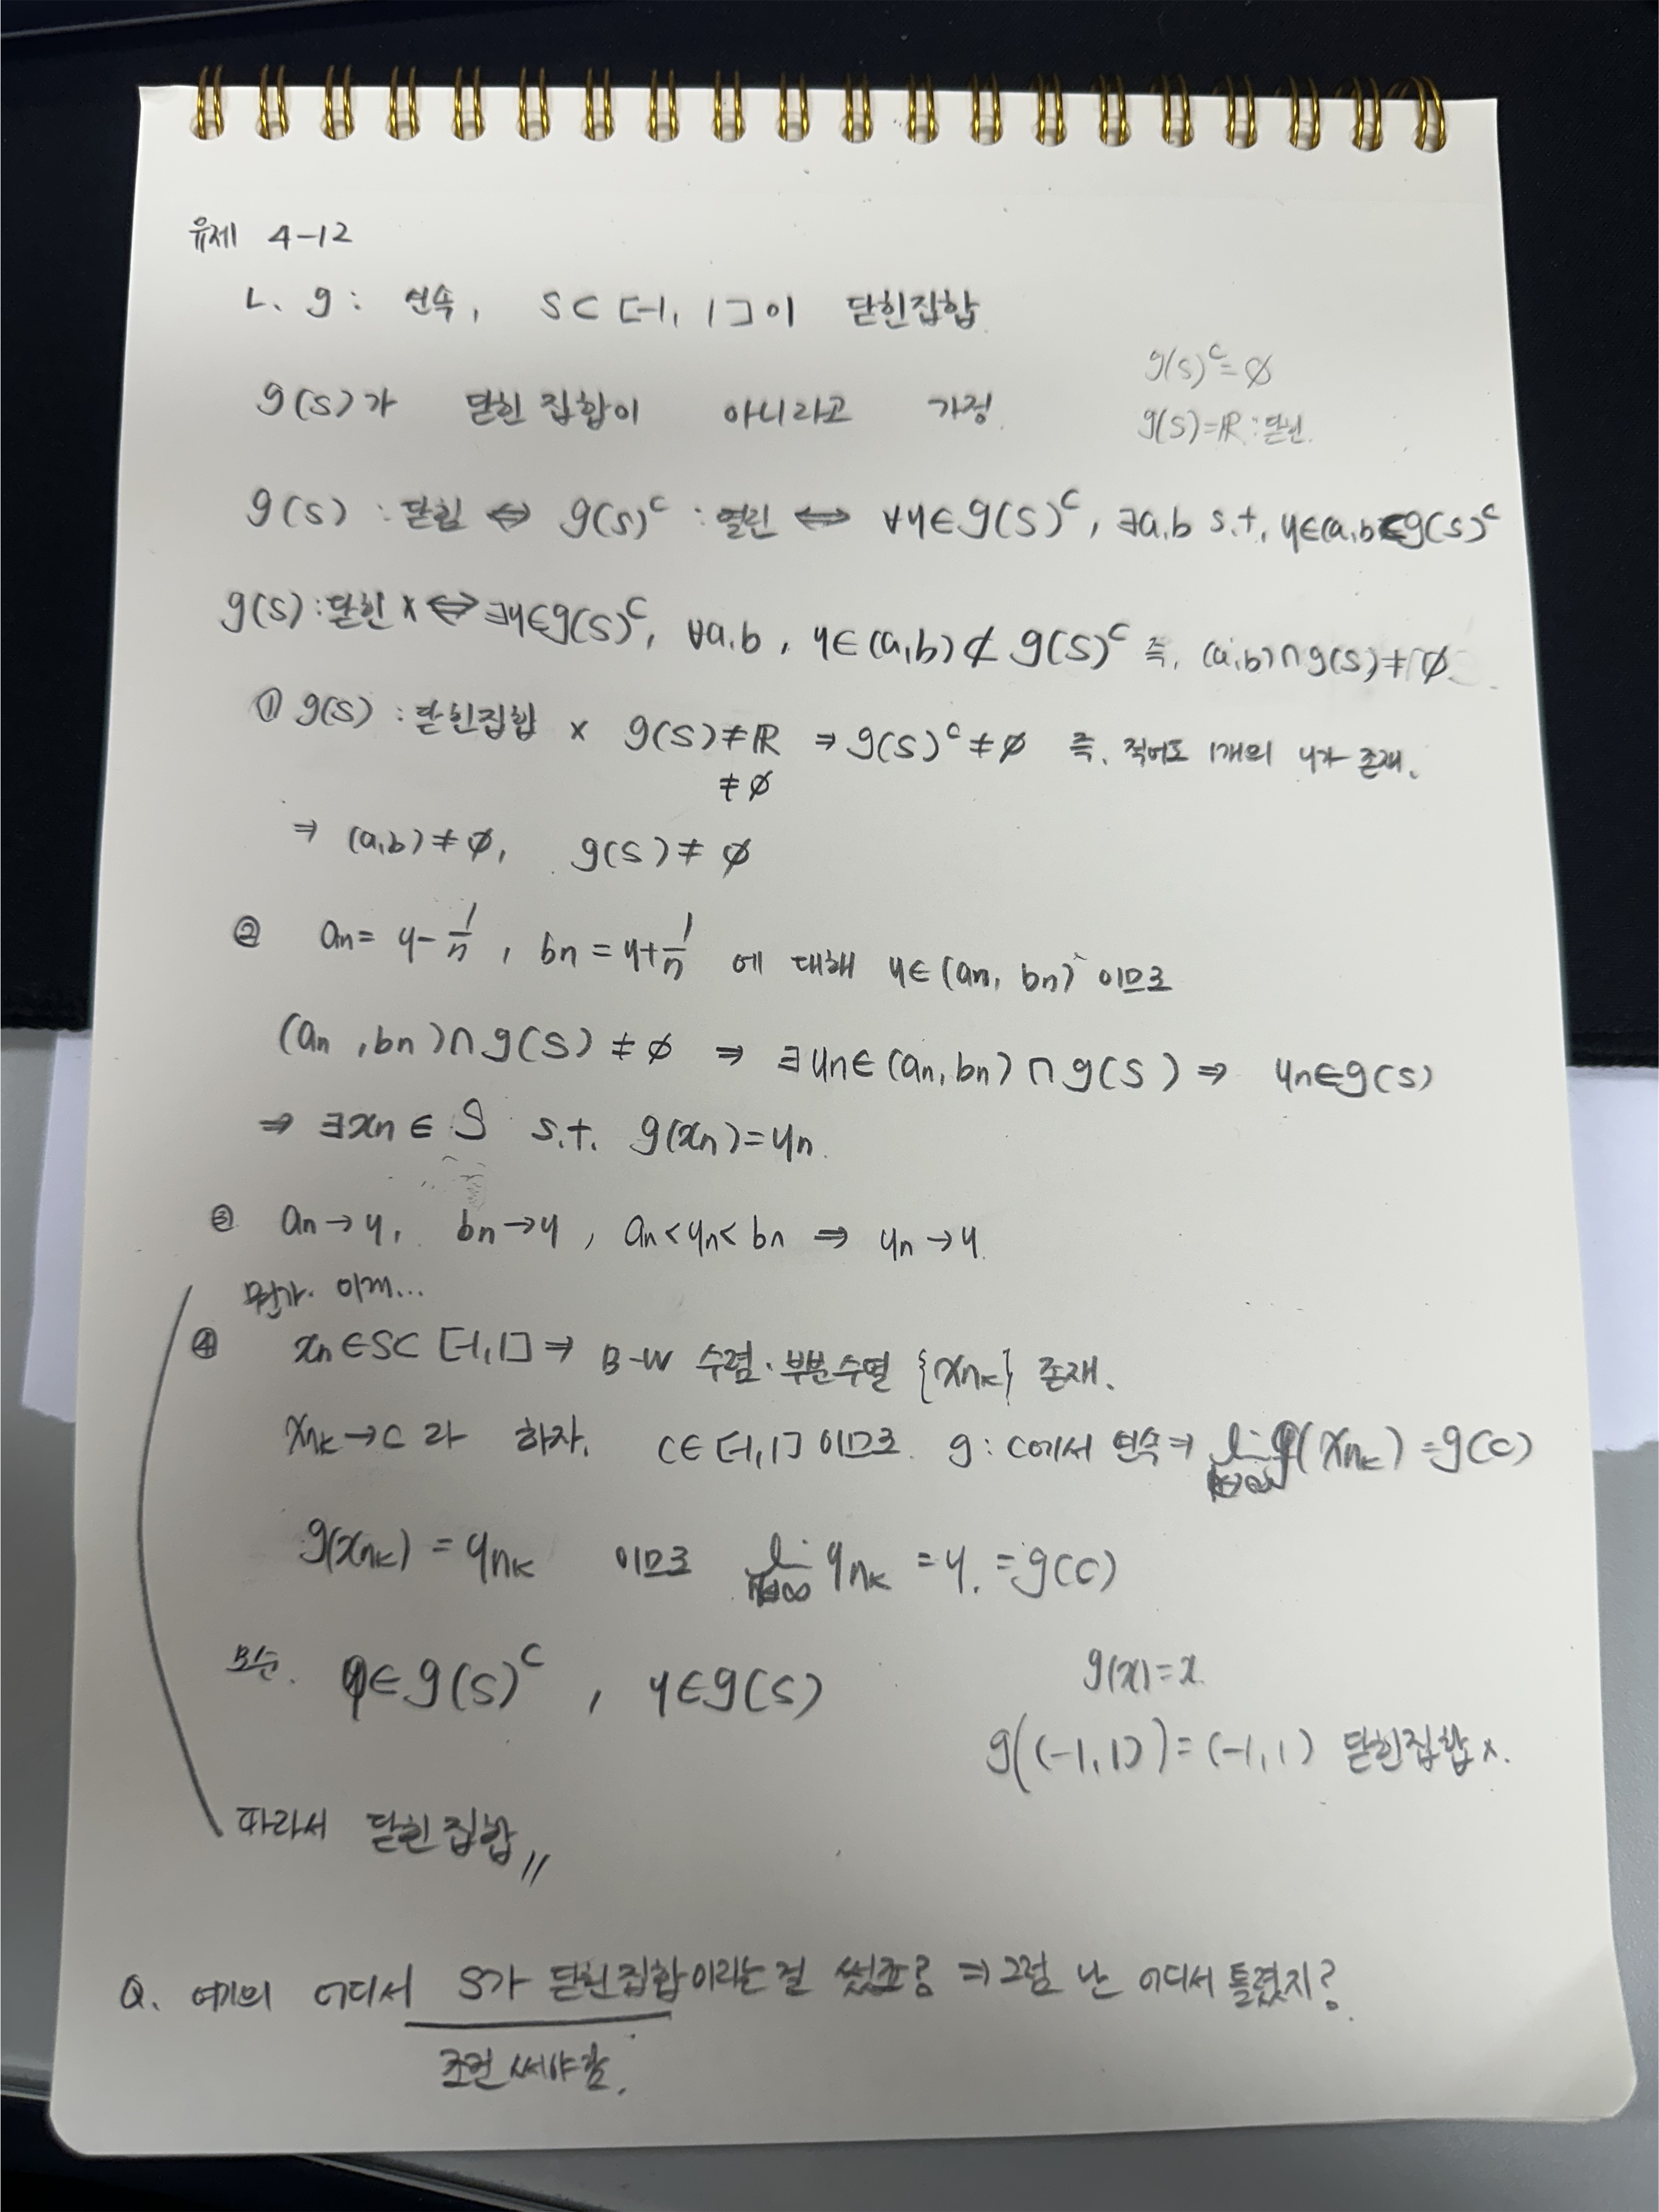 유제 4-12
ㄴ. g: 연속, S⊂[-1, 1]이 닫힌집합
g(S)^c=∅
g(S)가 닫힌 집합이 아니라고 가정.
g(S)=ℝ: 닫힌.
g(S) : 닫힘 ⇔ g(S)^c : 열린 ⇔ ∀y∈g(S)^c, ∃a,b s.t. y∈(a,b)⊂g(S)^c
g(S): 닫힌 x ⇔ ∃y∈g(S)^c, ∀a,b, y∈(a,b)⊄g(S)^c 즉, (a,b)∩g(S)≠∅
① g(S) : 닫힌집합 x g(S)≠ℝ ⇒ g(S)^c≠∅ 즉, 적어도 1개의 y가 존재.
≠∅
⇒ (a,b)≠∅, g(S)≠∅
② an= y-1/n, bn=y+1/n 에 대해 y∈(an, bn) 이므로
(an, bn)∩g(S)≠∅ ⇒ ∃yn∈(an, bn)∩g(S) ⇒ yn∈g(S)
⇒ ∃xn∈S s.t. g(xn)=yn.
③ an→y, bn→y, an<yn<bn ⇒ yn→y.
뭔가 이제...
④ xn∈S⊂[-1,1]⇒ B-W 수렴 부분수열 {xnk} 존재.
xnk→c 라 하자. c∈[-1,1] 이므로 g: c에서 연속⇒ lim k→∞ g(xnk)=g(c)
g(xnk)=ynk 이므로 lim ynk=y.=g(c)
모순. y∈g(S)^c, y∈g(S)
g(x)=x
g((-1,1))=(-1,1) 닫힌집합 x.
따라서 닫힌집합,,
Q. 여기의 어디서 S가 닫힌집합이라는 걸 썼죠? ⇒그럼 난 어디서 틀렸지?
조건 써야함.